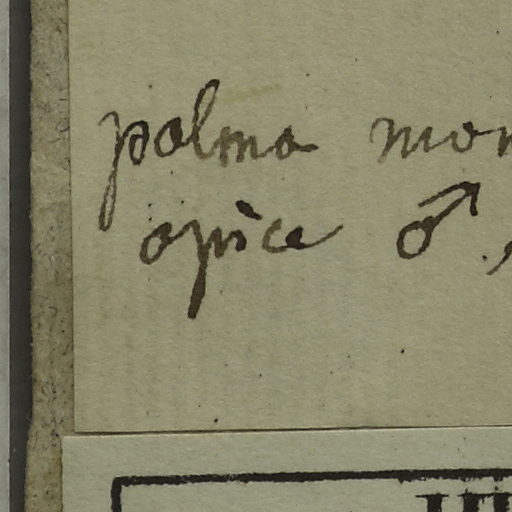 palma mon
apice ♂,